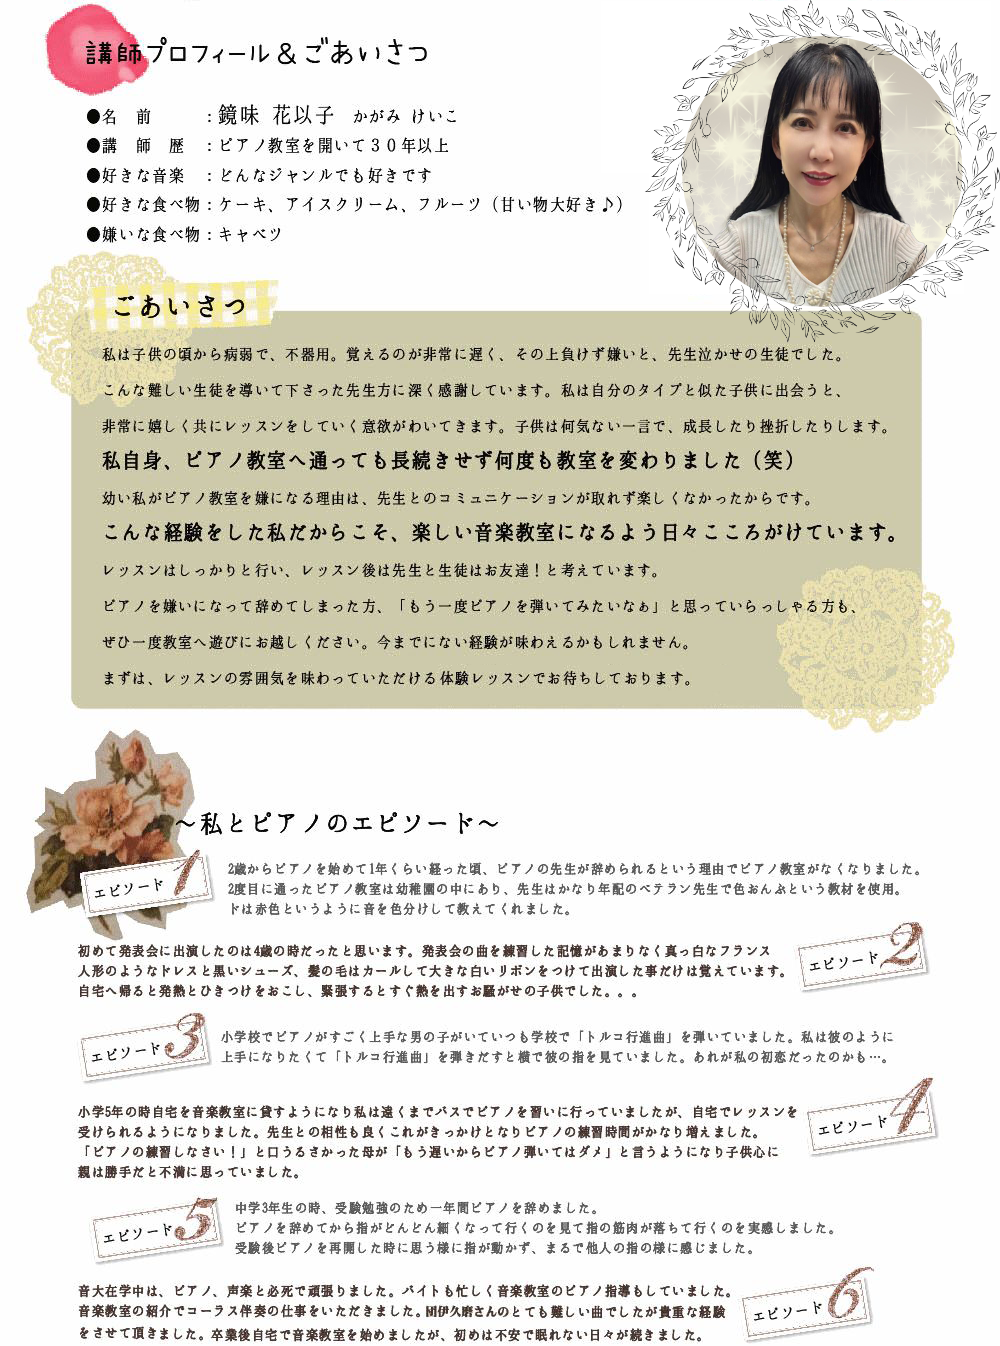 講師プロフィール＆ごあいさつ
●名　前　　　：鏡味 花以子　かがみ けいこ
●講　師　歴　：ピアノ教室を開いて３０年以上
●好きな音楽　：どんなジャンルでも好きです
●好きな食べ物：ケーキ、アイスクリーム、フルーツ（甘い物大好き♪）
●嫌いな食べ物：キャベツ
ごあいさつ
私は子供の頃から病弱で、不器用。覚えるのが非常に遅く、その上負けず嫌いと、先生泣かせの生徒でした。
こんな難しい生徒を導いて下さった先生方に深く感謝しています。私は自分のタイプと似た子供に出会うと、
非常に嬉しく共にレッスンをしていく意欲がわいてきます。子供は何気ない一言で、成長したり挫折したりします。
私自身、ピアノ教室へ通っても長続きせず何度も教室を変わりました（笑）
幼い私がピアノ教室を嫌になる理由は、先生とのコミュニケーションが取れず楽しくなかったからです。
こんな経験をした私だからこそ、楽しい音楽教室になるよう日々こころがけています。
レッスンはしっかりと行い、レッスン後は先生と生徒はお友達！と考えています。
ピアノを嫌いになって辞めてしまった方、「もう一度ピアノを弾いてみたいなぁ」と思っていらっしゃる方も、
ぜひ一度教室へ遊びにお越しください。今までにない経験が味わえるかもしれません。
まずは、レッスンの雰囲気を味わっていただける体験レッスンでお待ちしております。
～私とピアノのエピソード～
エピソード 1
2歳からピアノを始めて1年くらい経った頃、ピアノの先生が辞められるという理由でピアノ教室がなくなりました。
2度目に通ったピアノ教室は幼稚園の中にあり、先生はかなり年配のベテラン先生で色おんぷという教材を使用。
ドは赤色というように音を色分けして教えてくれました。
エピソード 2
初めて発表会に出演したのは4歳の時だったと思います。発表会の曲を練習した記憶があまりなく真っ白なフランス
人形のようなドレスと黒いシューズ、髪の毛はカールして大きな白いリボンをつけて出演した事だけは覚えています。
自宅へ帰ると発熱とひきつけをおこし、緊張するとすぐ熱を出すお騒がせの子供でした。。。
エピソード 3
小学校でピアノがすごく上手な男の子がいていつも学校で「トルコ行進曲」を弾いていました。私は彼のように
上手になりたくて「トルコ行進曲」を弾きだすと横で彼の指を見ていました。あれが私の初恋だったのかも…。
エピソード 4
小学5年の時自宅を音楽教室に貸すようになり私は遠くまでバスでピアノを習いに行っていましたが、自宅でレッスンを
受けられるようになりました。先生との相性も良くこれがきっかけとなりピアノの練習時間がかなり増えました。
「ピアノの練習しなさい！」と口うるさかった母が「もう遅いからピアノ弾いてはダメ」と言うようになり子供心に
親は勝手だと不満に思っていました。
エピソード 5
中学3年生の時、受験勉強のため一年間ピアノを辞めました。
ピアノを辞めてから指がどんどん細くなって行くのを見て指の筋肉が落ちて行くのを実感しました。
受験後ピアノを再開した時に思う様に指が動かず、まるで他人の指の様に感じました。
エピソード 6
音大在学中は、ピアノ、声楽と必死で頑張りました。バイトも忙しく音楽教室のピアノ指導もしていました。
音楽教室の紹介でコーラス伴奏の仕事をいただきました。團伊久磨さんのとても難しい曲でしたが貴重な経験
をさせて頂きました。卒業後自宅で音楽教室を始めましたが、初めは不安で眠れない日々が続きました。